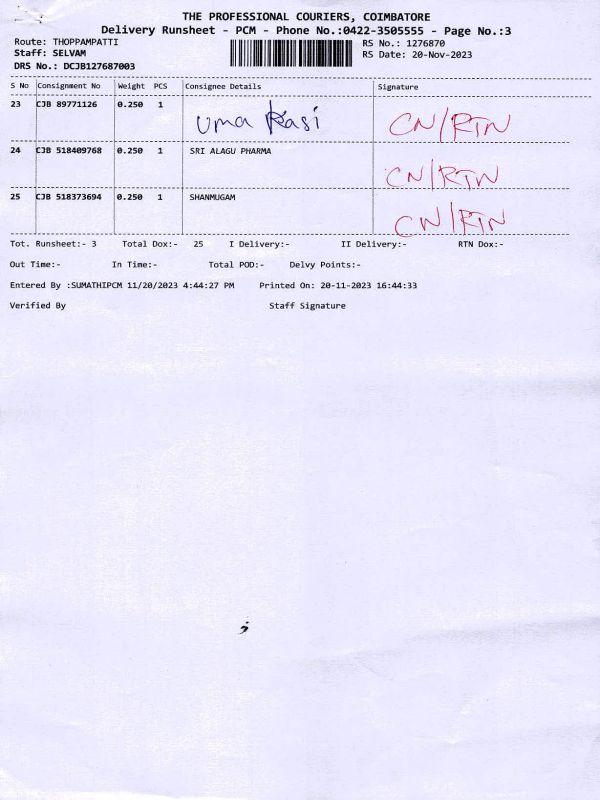 THE PROFESSIONAL COURIERS, COIMBATORE
Delivery Runsheet - PCM - Phone No.:0422-3505555 - Page No.:3
Route: THOPPAMPATTI RS No.: 1276870
Staff: SELVAM RS Date: 20-Nov-2023
DRS No.: DCJB127687003
S No Consignment No Weight PCS Consignee Details Signature
23 CJB 89771126 0.250 1 Uma Rasi CN/RTN
24 CJB 518409768 0.250 1 SRI ALAGU PHARMA CN/RTN
25 CJB 518373694 0.250 1 SHANMUGAM CN/RTN
Tot. Runsheet:- 3 Total Dox:- 25 I Delivery:- II Delivery:- RTN Dox:-
Out Time:- In Time:- Total POD:- Delvy Points:-
Entered By :SUMATHIPCM 11/20/2023 4:44:27 PM Printed On: 20-11-2023 16:44:33
Verified By Staff Signature